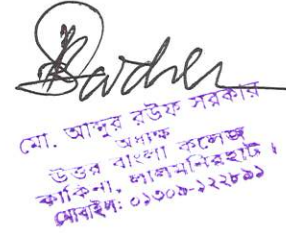 মো. আব্দুর রউফ সরকার
অধ্যক্ষ
উত্তর বাংলা কলেজ
কাকিনা, লালমনিরহাট।
মোবাইল: ০১৩০৯-১২২৮৯১